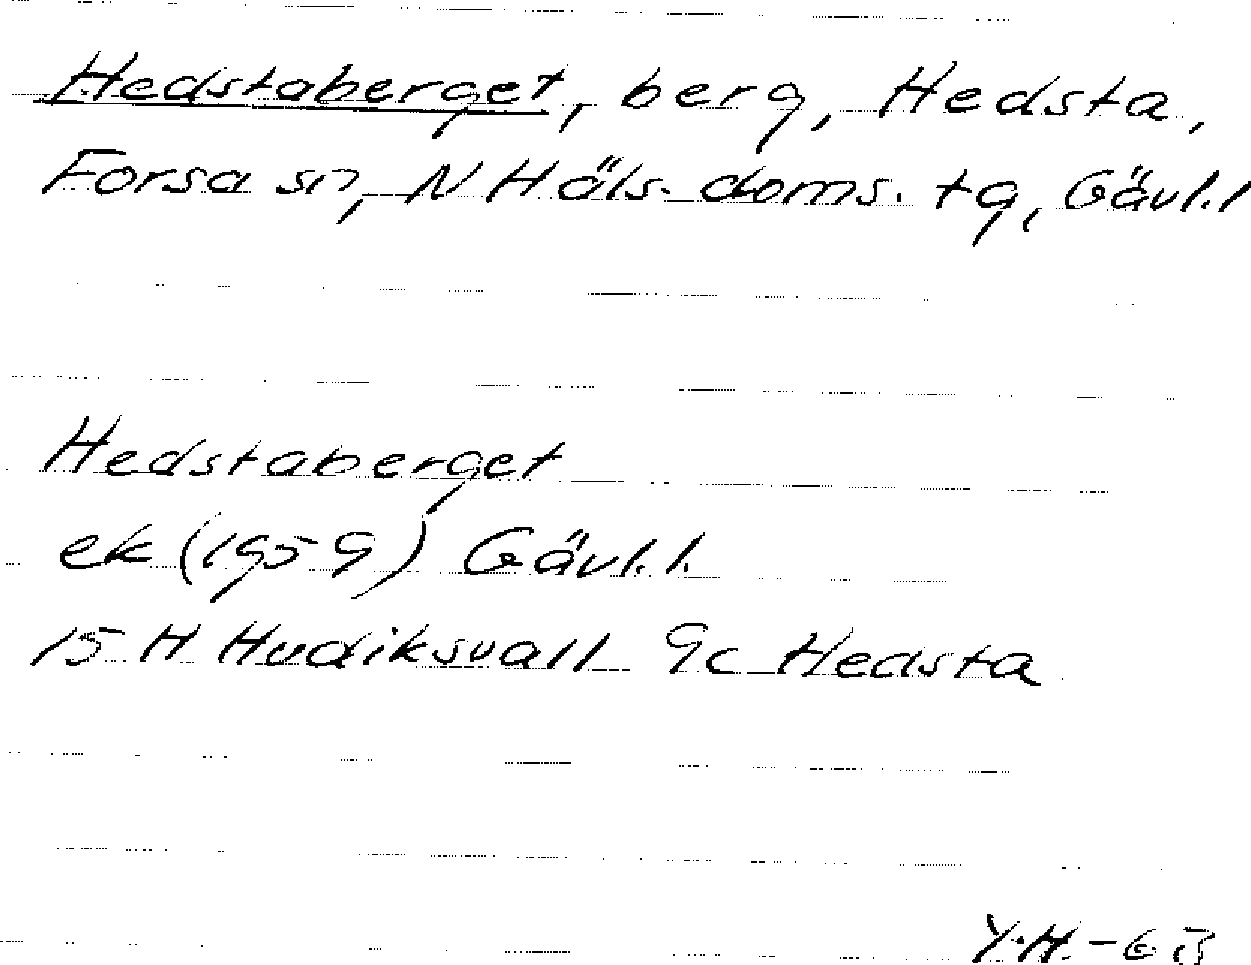 Hedstaberget, berg, Hedsta,
Forsa sn, N Häls. doms. tg, Gävl.l
Hedstaberget
ek (1959) Gävl.l.
15 H Hudiksvall 9c Hedsta
Y.H. -63